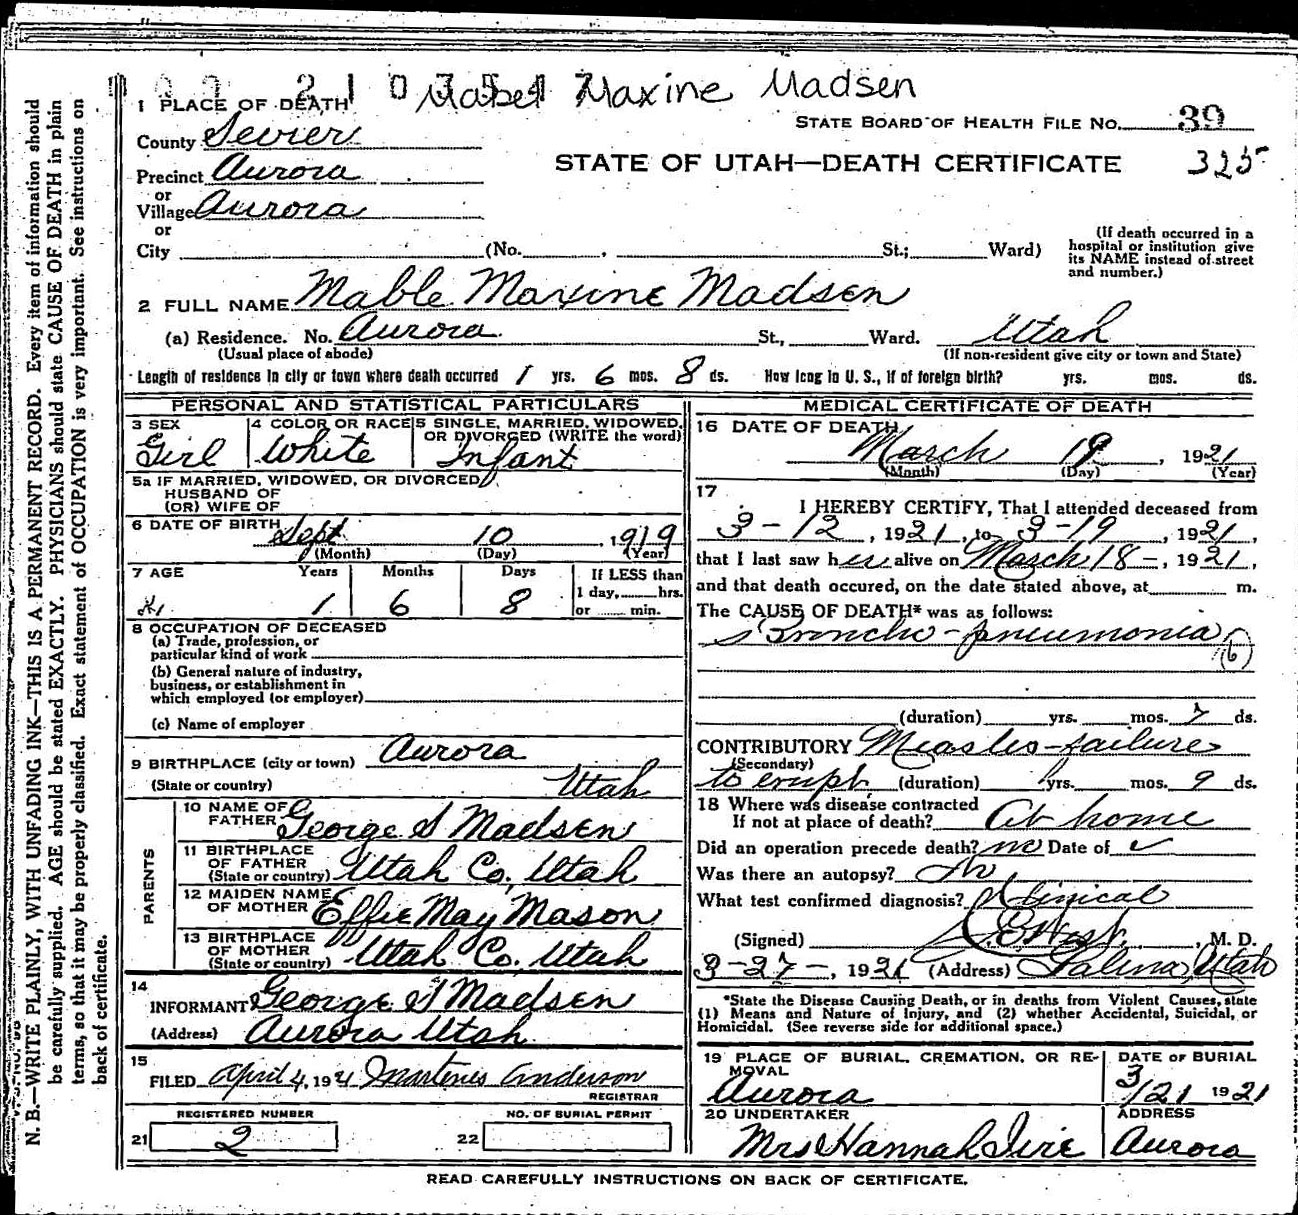 Mabel Maxine Madsen
1 PLACE OF DEATH
STATE BOARD OF HEALTH FILE NO. 39
County Sevier
STATE OF UTAH—DEATH CERTIFICATE 325
Precinct Aurora
or
Village Aurora
or
City (No. , St.; Ward)
(If death occurred in a hospital or institution give its NAME instead of street and number.)
2 FULL NAME Mable Maxine Madsen
(a) Residence. No. Aurora St., Ward. Utah
(Usual place of abode) (If non-resident give city or town and State)
Length of residence in city or town where death occurred 1 yrs. 6 mos. 8 ds. How long in U. S., if of foreign birth? yrs. mos. ds.
PERSONAL AND STATISTICAL PARTICULARS
3 SEX Girl
4 COLOR OR RACE White
5 SINGLE, MARRIED, WIDOWED, OR DIVORCED (WRITE the word) Infant
5a IF MARRIED, WIDOWED, OR DIVORCED
HUSBAND OF
(OR) WIFE OF
6 DATE OF BIRTH Sept 10 1919
(Month) (Day) (Year)
7 AGE Years Months Days If LESS than
1 day, hrs.
1 6 8 or min.
8 OCCUPATION OF DECEASED
(a) Trade, profession, or
particular kind of work
(b) General nature of industry,
business, or establishment in
which employed (or employer)
(c) Name of employer
9 BIRTHPLACE (city or town) Aurora
(State or country) Utah
PARENTS
10 NAME OF FATHER George S Madsen
11 BIRTHPLACE OF FATHER (State or country) Utah Co, Utah
12 MAIDEN NAME OF MOTHER Effie May Mason
13 BIRTHPLACE OF MOTHER (State or country) Utah Co. Utah
14
INFORMANT George S Madsen
(Address) Aurora Utah
15
FILED April 4, 1921 Martenis Anderson
REGISTRAR
REGISTERED NUMBER NO. OF BURIAL PERMIT
21 2 22
MEDICAL CERTIFICATE OF DEATH
16 DATE OF DEATH
March 19, 1921
(Month) (Day) (Year)
17
I HEREBY CERTIFY, That I attended deceased from
3-12, 1921, to 3-19, 1921,
that I last saw her alive on March 18-, 1921,
and that death occured, on the date stated above, at m.
The CAUSE OF DEATH* was as follows:
Broncho-pneumonia
(6)
(duration) yrs. mos. 7 ds.
CONTRIBUTORY Measles-failure
(Secondary)
to erupt (duration) yrs. mos. 9 ds.
18 Where was disease contracted
If not at place of death? At home
Did an operation precede death? no Date of
Was there an autopsy? No
What test confirmed diagnosis? Clinical
(Signed) C. E. West, M. D.
3-27-, 1921 (Address) Salina, Utah
*State the Disease Causing Death, or in deaths from Violent Causes, state
(1) Means and Nature of Injury, and (2) whether Accidental, Suicidal, or
Homicidal. (See reverse side for additional space.)
19 PLACE OF BURIAL, CREMATION, OR REMOVAL
Aurora
DATE OF BURIAL
3/21 1921
20 UNDERTAKER
Mrs Hannah Ivie
ADDRESS
Aurora
READ CAREFULLY INSTRUCTIONS ON BACK OF CERTIFICATE.
N. B.—WRITE PLAINLY, WITH UNFADING INK—THIS IS A PERMANENT RECORD. Every item of information should
be carefully supplied. AGE should be stated EXACTLY. PHYSICIANS should state CAUSE OF DEATH in plain
terms, so that it may be properly classified. Exact statement of OCCUPATION is very important. See instructions on
back of certificate.